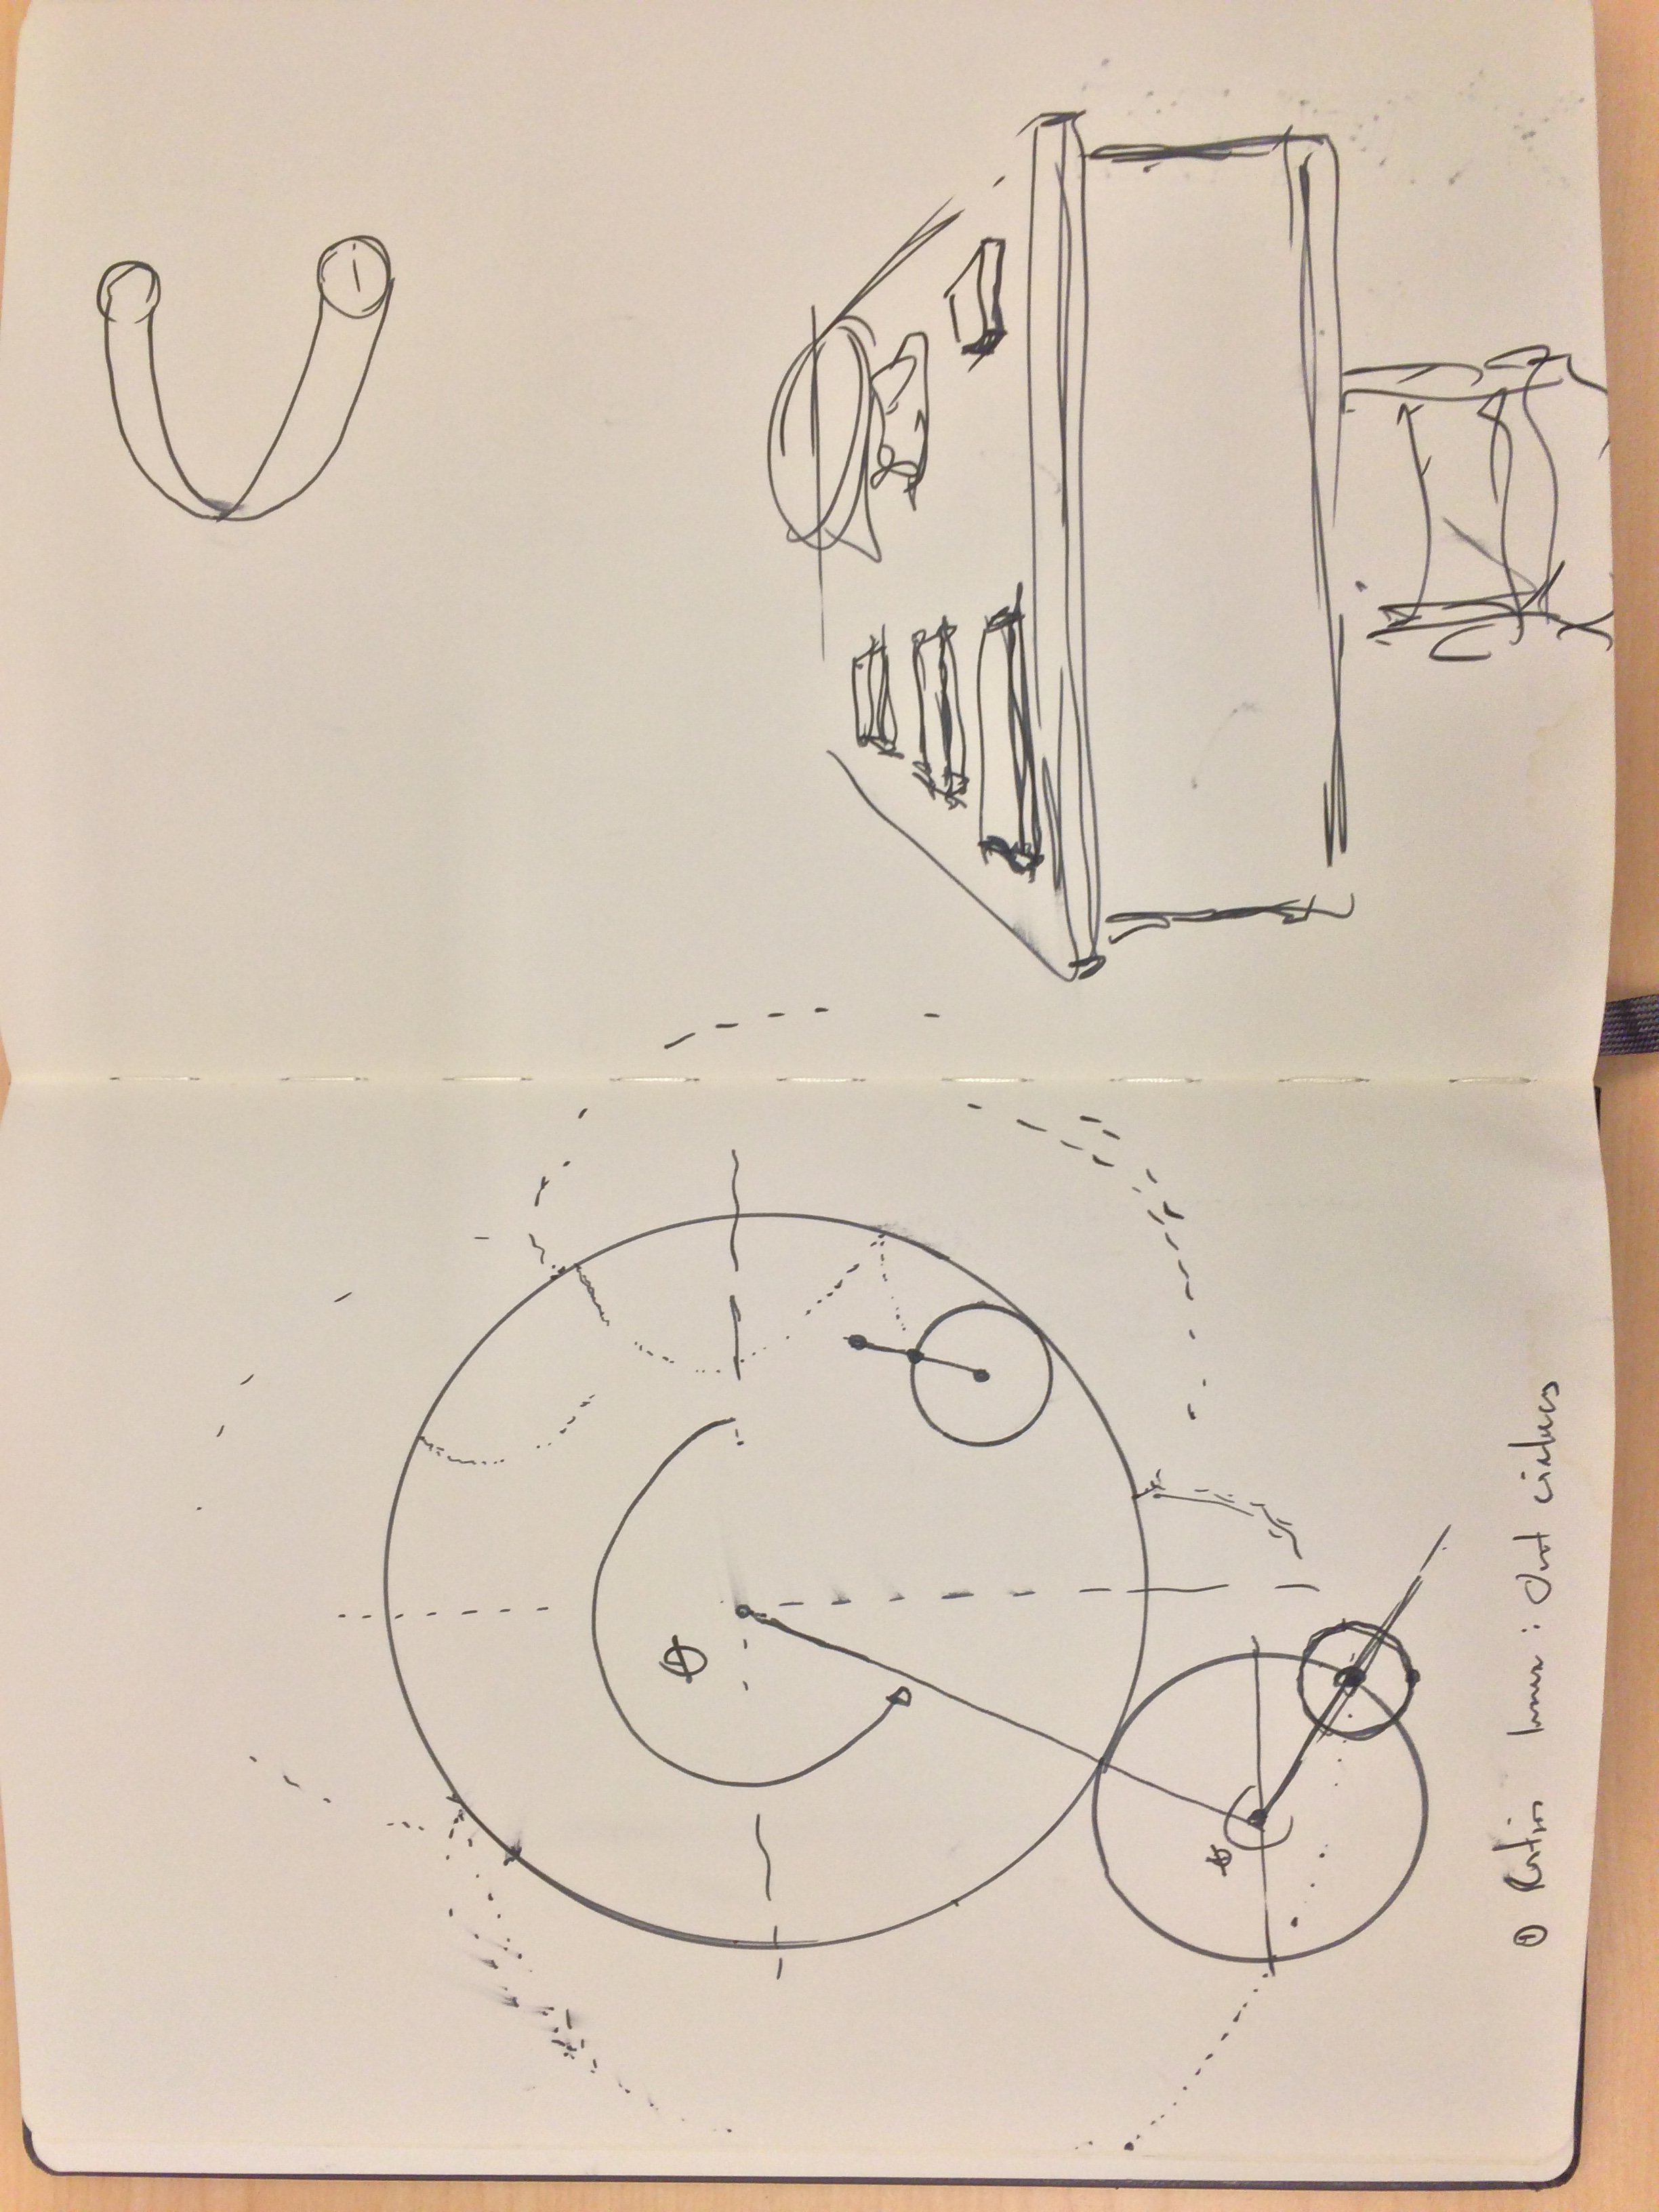 ① Ratio Inner : Out circles
ø
ø